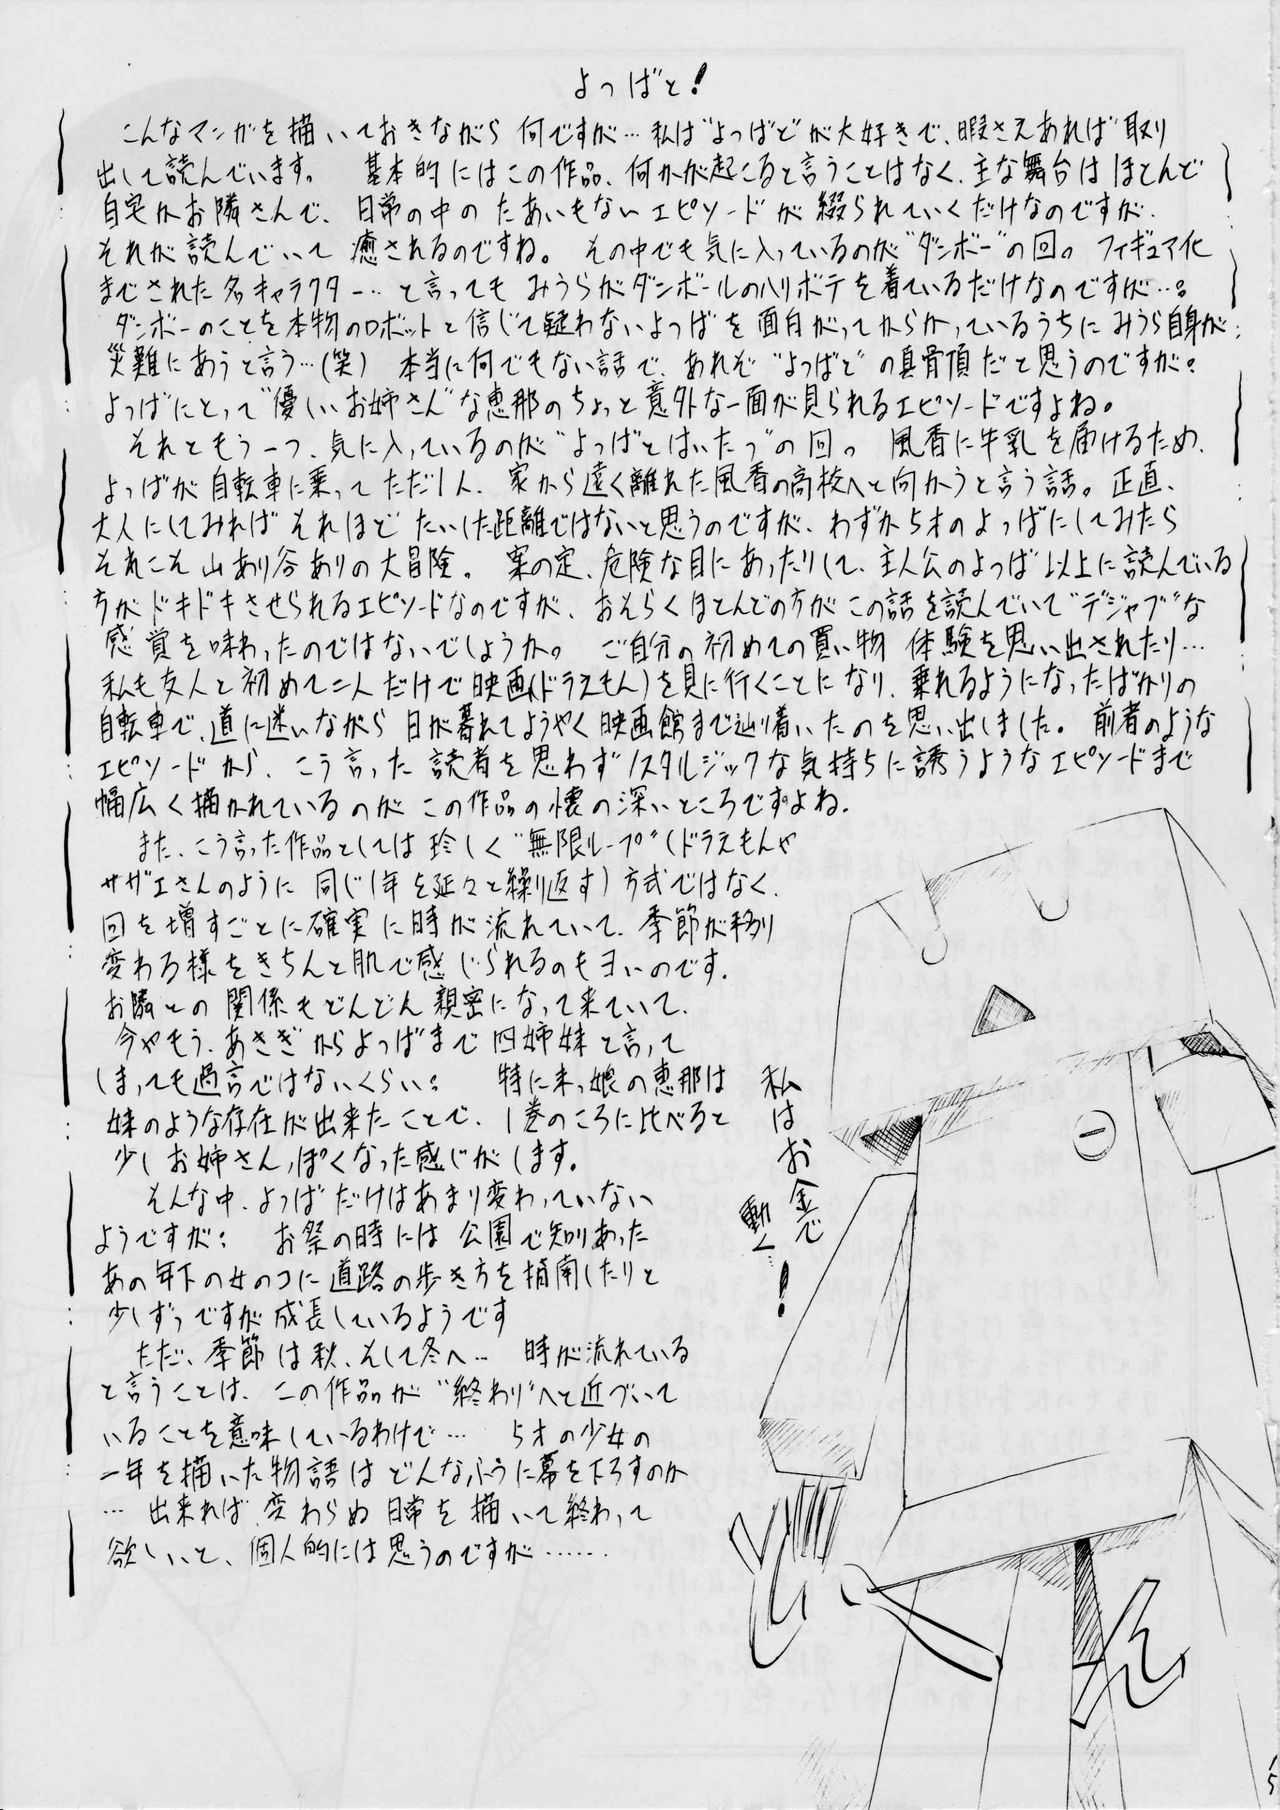 よつばと!
こんなマンガを描いておきながら何ですが…私は"よつばと"が大好きで、暇さえあれば取り
出して読んでいます。 基本的にはこの作品、何かが起こると言うことはなく、主な舞台はほとんど
自宅かお隣さんで、日常の中のたあいもないエピソードが綴られていくだけなのですが、
それが読んでいて癒されるのですね。 その中でも気に入っているのが"ダンボー"の回。フィギュア化
までされた名キャラクター…と言ってもみうらがダンボールのハリボテを着ているだけなのですが…。
ダンボーのことを本物のロボットと信じて疑わないよつばを面白がってからかっているうちにみうら自身が
災難にあうと言う…(笑) 本当に何でもない話で、あれぞ"よつばと"の真骨頂だと思うのですが。
よつばにとって"優しいお姉さん"な恵那のちょっと意外な一面が見られるエピソードですよね。
それともう一つ、気に入っているのが"よつばとはいたつ"の回。 風香に牛乳を届けるため、
よつばが自転車に乗ってただ1人、家から遠く離れた風香の高校へと向かうと言う話。正直、
大人にしてみればそれほどたいした距離ではないと思うのですが、わずか5才のよつばにしてみたら
それこそ山あり谷ありの大冒険。 案の定、危険な目にあったりして、主人公のよつば以上に読んでいる
方がドキドキさせられるエピソードなのですが、おそらくほとんどの方がこの話を読んでいて"デジャブ"な
感覚を味わったのではないでしょうか。 ご自分の初めての買い物体験を思い出されたり…
私も友人と初めて二人だけで映画(ドラえもん)を見に行くことになり、乗れるようになったばかりの
自転車で、道に迷いながら日が暮れてようやく映画館まで辿り着いたのを思い出しました。 前者のような
エピソードから、こう言った読者を思わずノスタルジックな気持ちに誘うようなエピソードまで
幅広く描かれているのがこの作品の懐の深いところですよね。
また、こう言った作品としては珍しく"無限ループ"(ドラえもんや
サザエさんのように同じ1年を延々と繰り返す)方式ではなく、
回を増すごとに確実に時が流れていて、季節が移り
変わる様をきちんと肌で感じられるのもヨいのです。
お隣との関係もどんどん親密になって来ていて、
今やもう、あさぎからよつばまで四姉妹と言って
しまっても過言ではないくらい。 特に末っ娘の恵那は
妹のような存在が出来たことで、1巻のころに比べると
少しお姉さんっぽくなった感じがします。
そんな中、よつばだけはあまり変わっていない
ようですが。 お祭の時には公園で知りあった
あの年下の女のコに道路の歩き方を指南したりと
少しずつですが成長しているようです
ただ、季節は秋、そして冬へ… 時が流れている
と言うことは、この作品が"終わり"へと近づいて
いることを意味しているわけで… 5才の少女の
一年を描いた物語はどんなふうに幕を下ろすのか
…出来れば、変わらぬ日常を描いて終わって
欲しいと、個人的には思うのですが……
私はお金で
動く…!
どしん
15